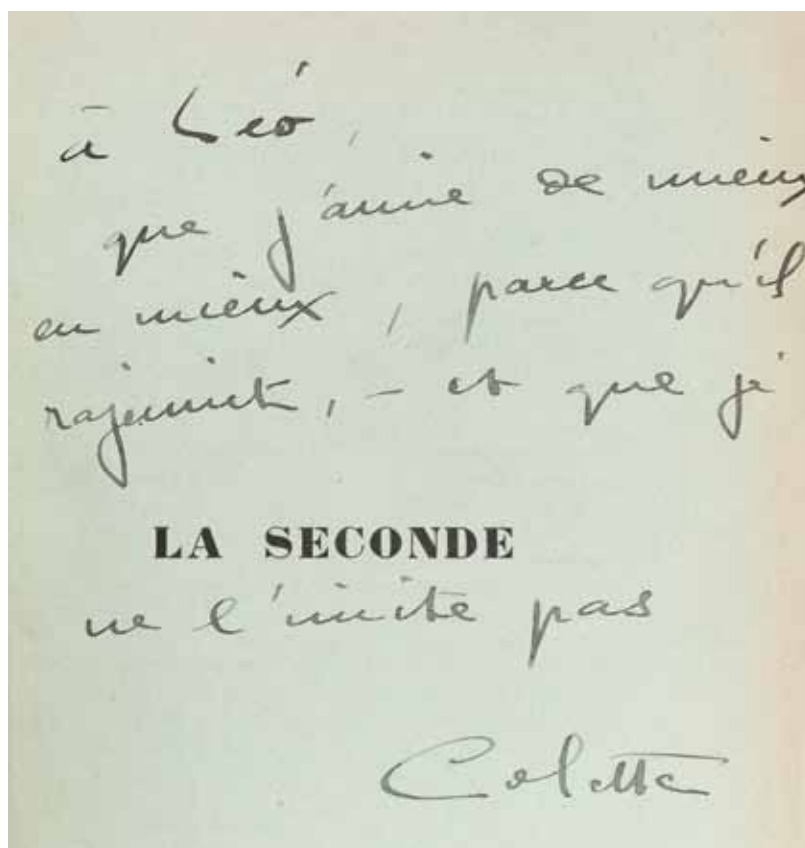 à Léo,
que j'aime de mieux
en mieux, parce qu'il
rajeunit, – et que je
LA SECONDE
ne l'imite pas
Colette